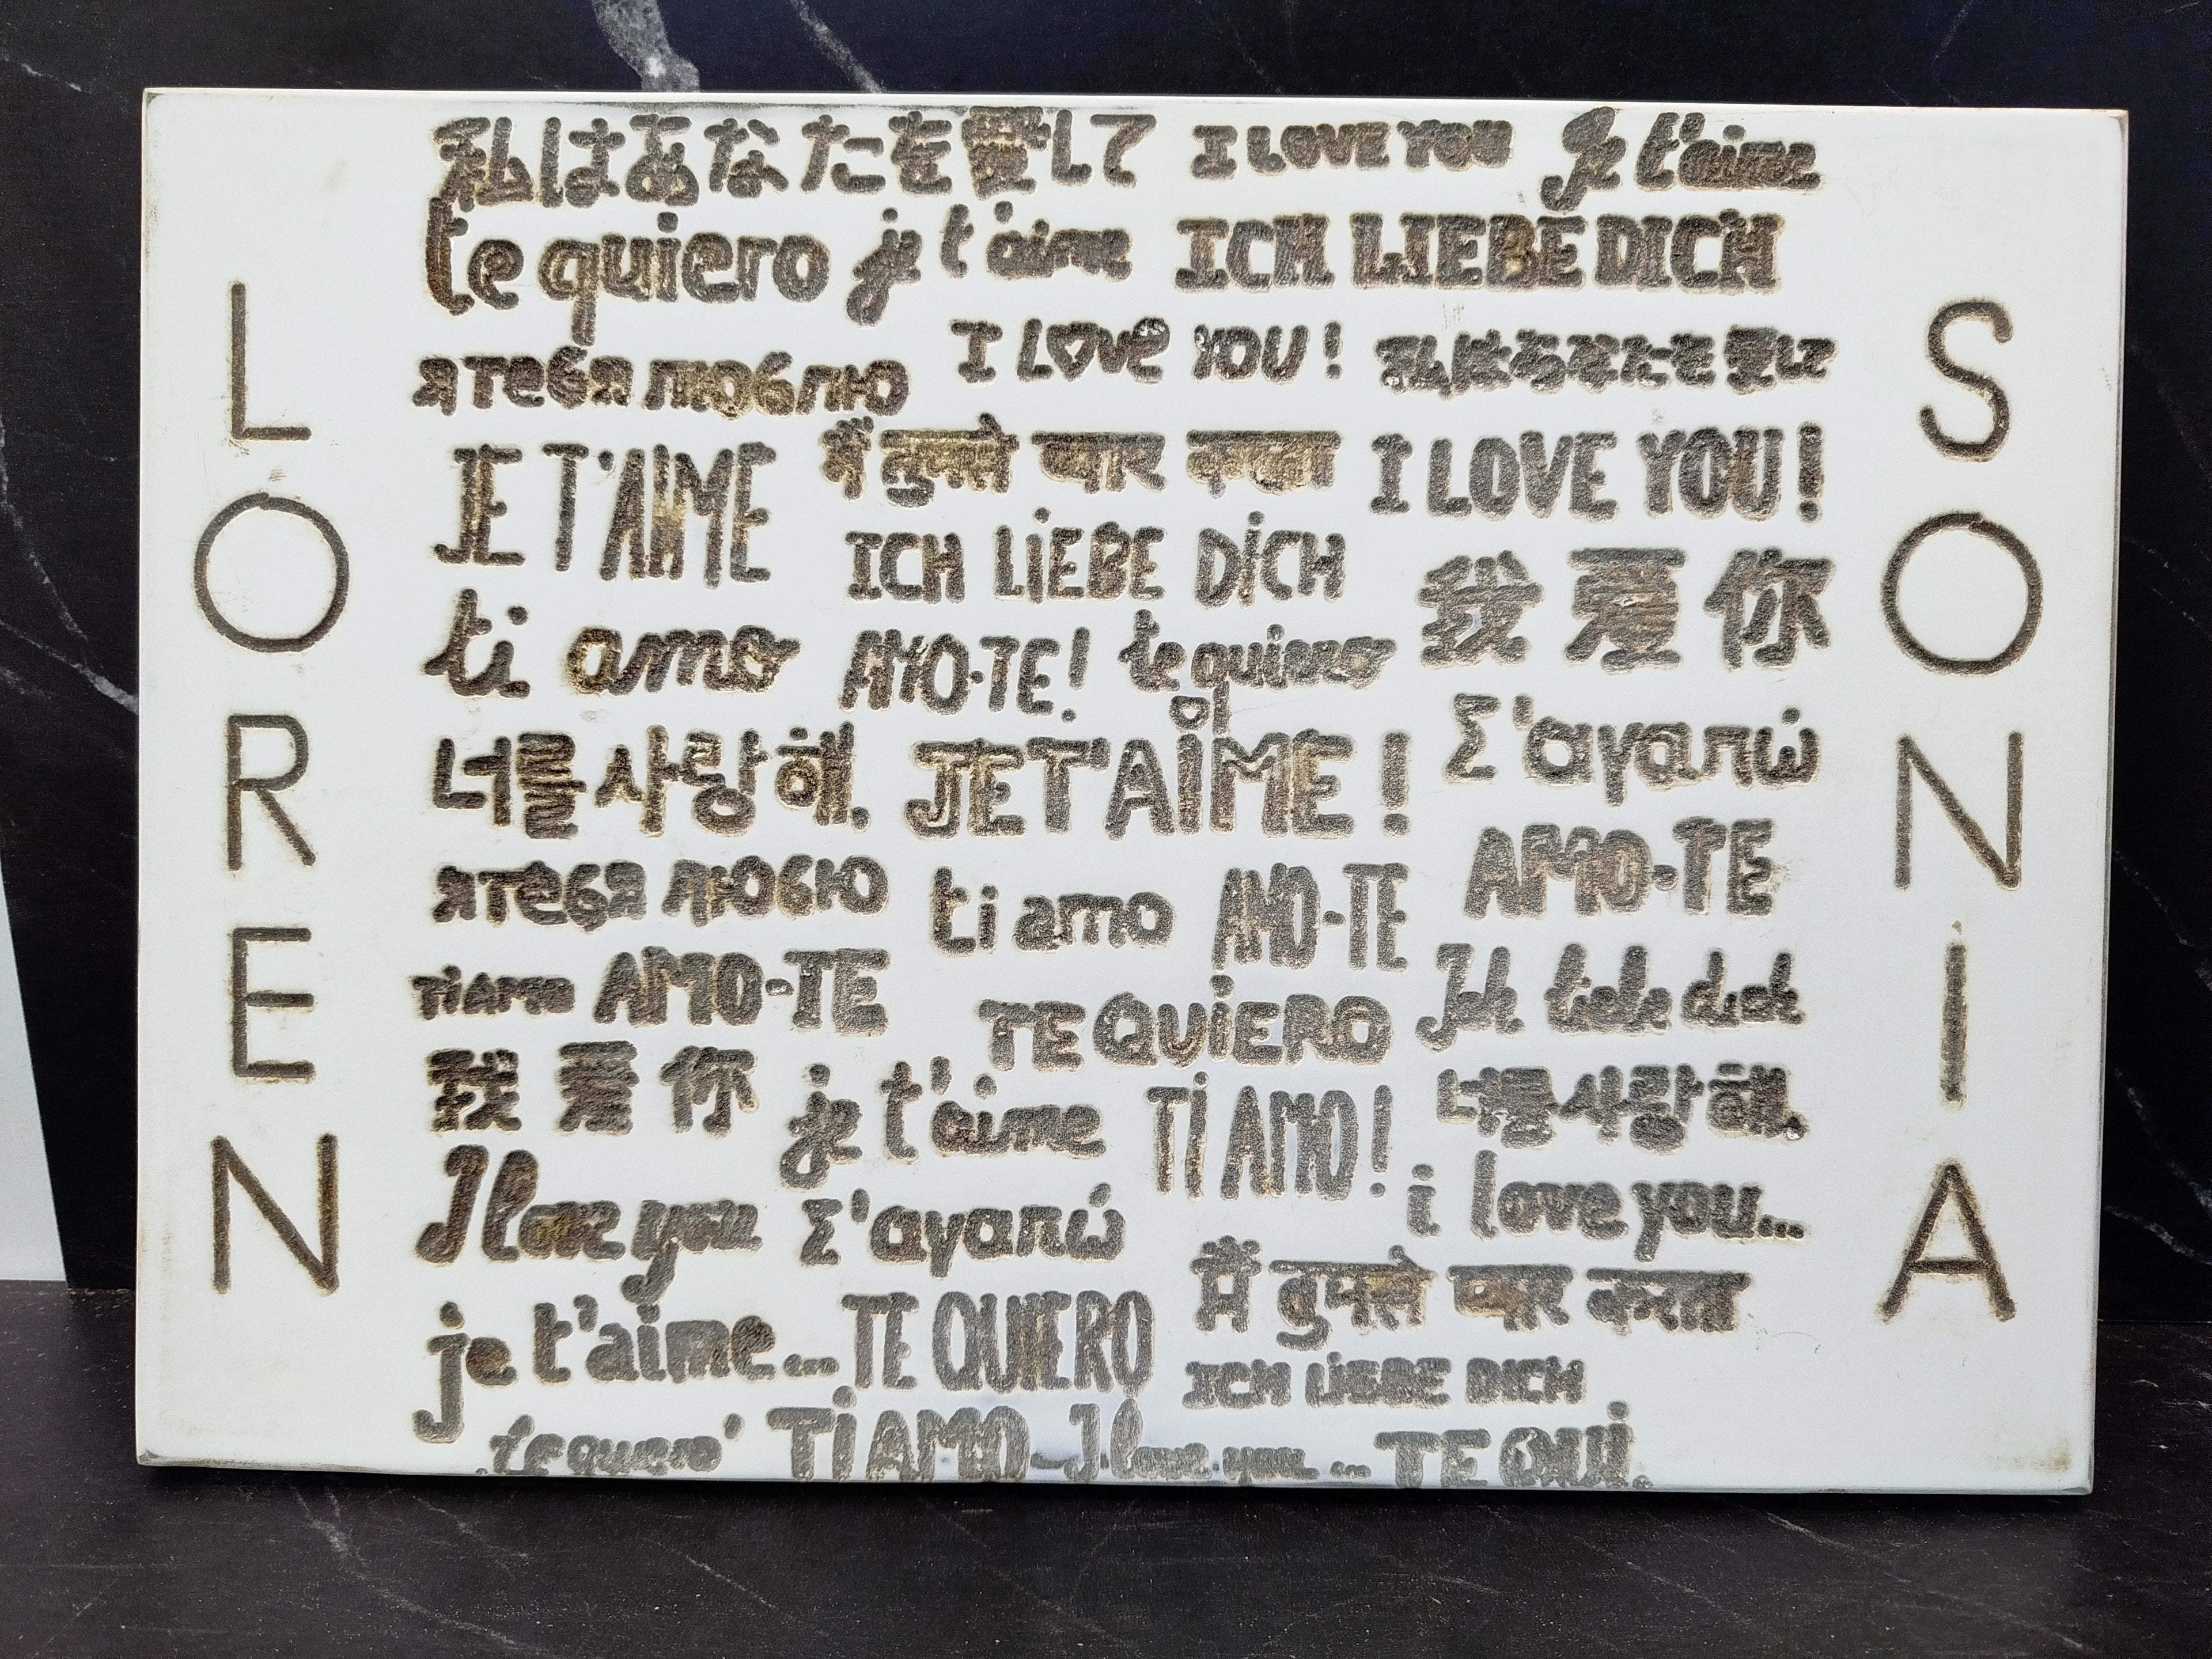 LOREN
私はあなたを愛して I LOVE YOU Je t'aime
te quiero je t'aime ICH LIEBE DICH
я тебя люблю I LOVE YOU! 私はあなたを愛して
JE T'AIME मैं तुमसे प्यार करता I LOVE YOU!
ICH LiEBE DiCH 我爱你
ti amo AMO-TE! te quiero
너를 사랑해. JE T'AiME! Σ'αγαπώ
я тебя люблю ti amo AMO-TE AMO-TE
Ti AMO AMO-TE TE QUiERO Ich liebe dich
我爱你 je t'aime Ti AMO! 너를 사랑해.
I love you Σ'αγαπώ i love you...
je t'aime... TE QUIERO मैं तुमसे प्यार करता
ICH LIEBE DICH
te quiero Ti AMO I love you... TE QUI.
SONIA